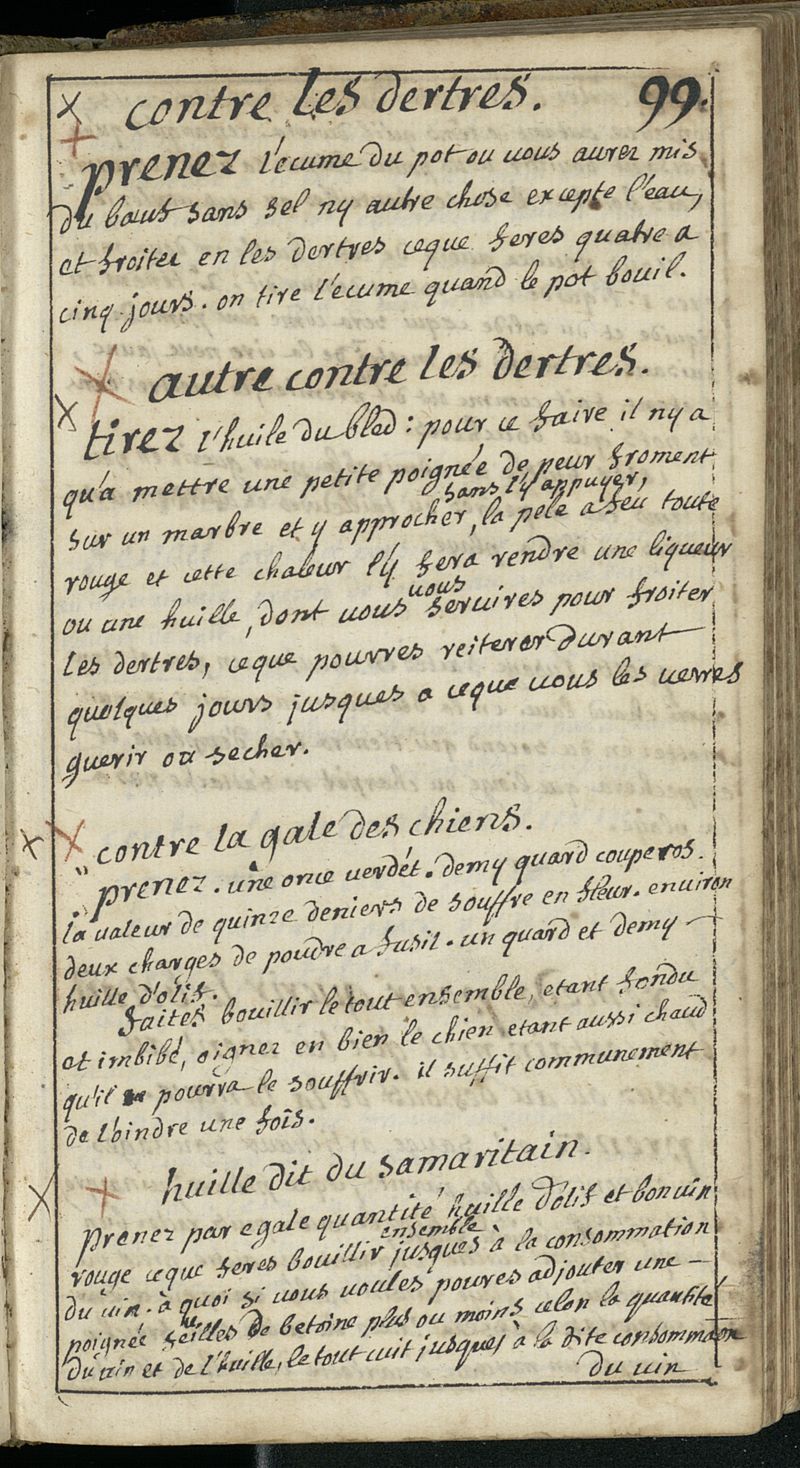 contre les dertres. 99.
prenez l'écume du pot ou vous aurez mis
du bœuf sans sel ny autre chose excepte l'eau,
et froitez en les dertres ceque feres quatre a
cinq jours. on tire l'ecume quand le pot bouil.
autre contre les dertres.
tirez l'huile du bled: pour ce faire il ny a
qu'a mettre une petite poignée de peur froment
sans l'y appuyer,
sur un marbre et y approcher, la pele a feu toute
rouge et cette chaleur l'y fera rendre une liqueur
vous
ou une huille, dont vous servires pour froiter
les dertres, ceque pouvres reiterer durant
quelques jours jusques a ceque vous les verres
guerir ou secher.
contre la gale des chiens.
prenez. une once verdét. demy quard couperos.
la valeur de quinze deniers de souffre en fleur. environ
deux charges de poudre a fusil. un quard et demy
huille d'olif.
faites bouillir le tout ensemble, etant fondu
et imbibé, oignez en bien le chien etant aussi chaud
qu'il pourra le souffrir. il suffit communement
de l'oindre une fois.
huille dit du samaritain.
prenez par egale quantité huille d'olif et bon vin
ensemble
rouge ceque feres bouillir jusques à la consommation
du vin. à quoi si vous voules pouvres adjouter une
poignée feuilles de betoine plus ou moins celon la quantité
du vin et de l'huille, le tout cuit jusques à la dite consommaon
du vin